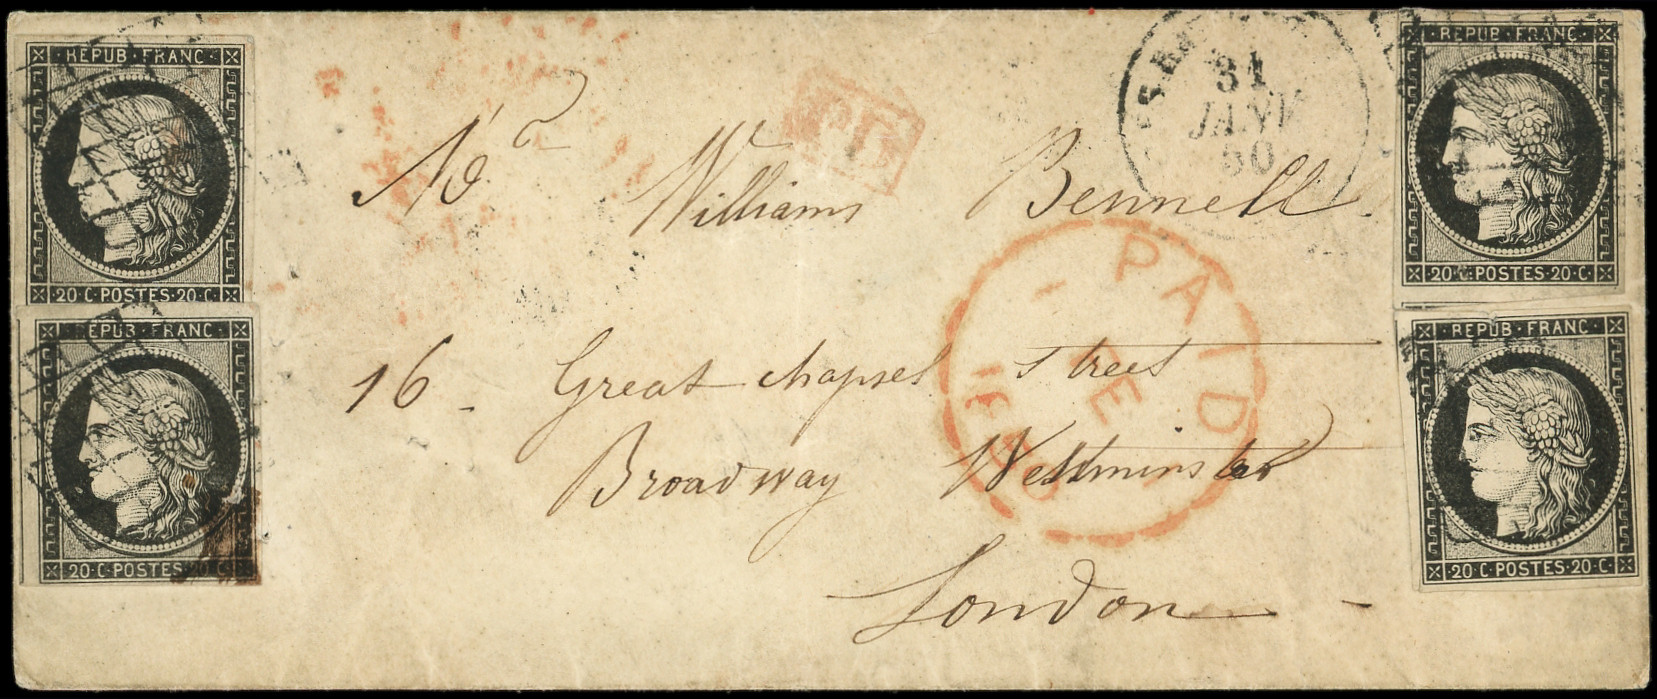 REPUB · FRANC ·
20 · C · POSTES · 20 · C ·
REPUB · FRANC ·
20 · C · POSTES · 20 · C ·
31
JANV
50
REPUB · FRANC ·
20 · C · POSTES · 20 · C ·
REPUB · FRANC ·
20 · C · POSTES · 20 · C ·
Williams Bennell
16 - Great chapel street
Broadway Westminster
London -
PAID
FE